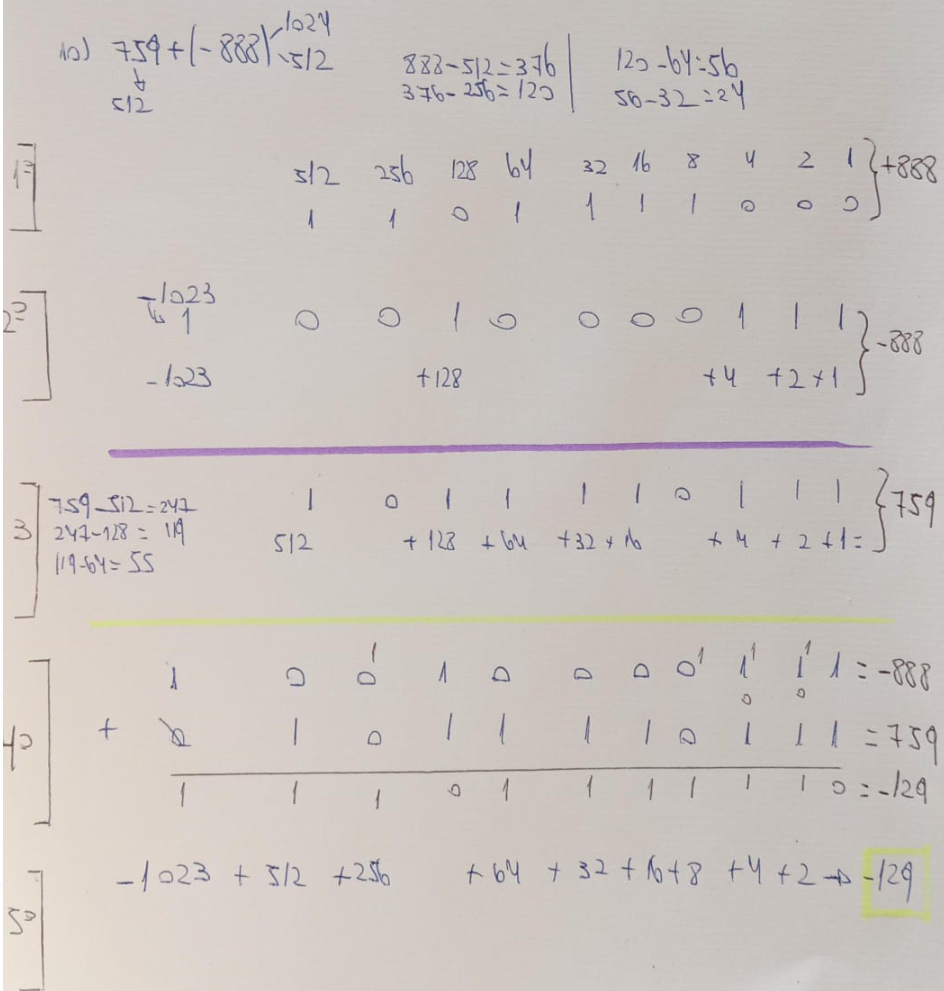 10) 759+(-888) 1024
512
512
888-512=376
376-256=120
120-64=56
56-32=24
1º
512 256 128 64 32 16 8 4 2 1 }+888
1 1 0 1 1 1 1 0 0 0
2º
-1023
↳ 1 0 0 1 0 0 0 0 1 1 1 }-888
-1023 +128 +4 +2 +1
3
759-512=247
247-128= 119
119-64= 55
1 0 1 1 1 1 0 1 1 1 }759
512 +128 +64 +32 +16 +4 +2 +1=
4º
1 1 1 1
1 0 0 1 0 0 0 0 1 1 1 =-888
0 0
+ 0 1 0 1 1 1 1 0 1 1 1 =759
1 1 1 0 1 1 1 1 1 1 0 =-129
5º
-1023 +512 +256 +64 +32 +16+8 +4+2 → -129